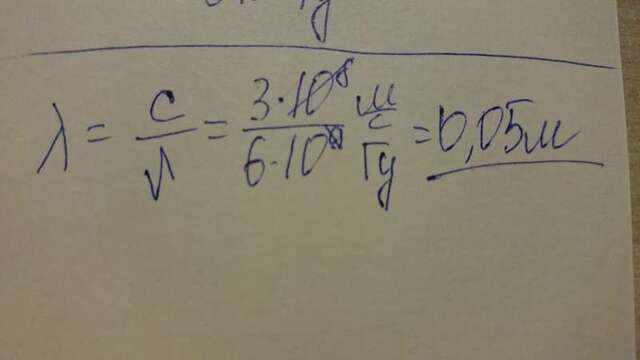 λ = c/ν = 3·10⁸/6·10⁹ м/с/Гц = 0,05м